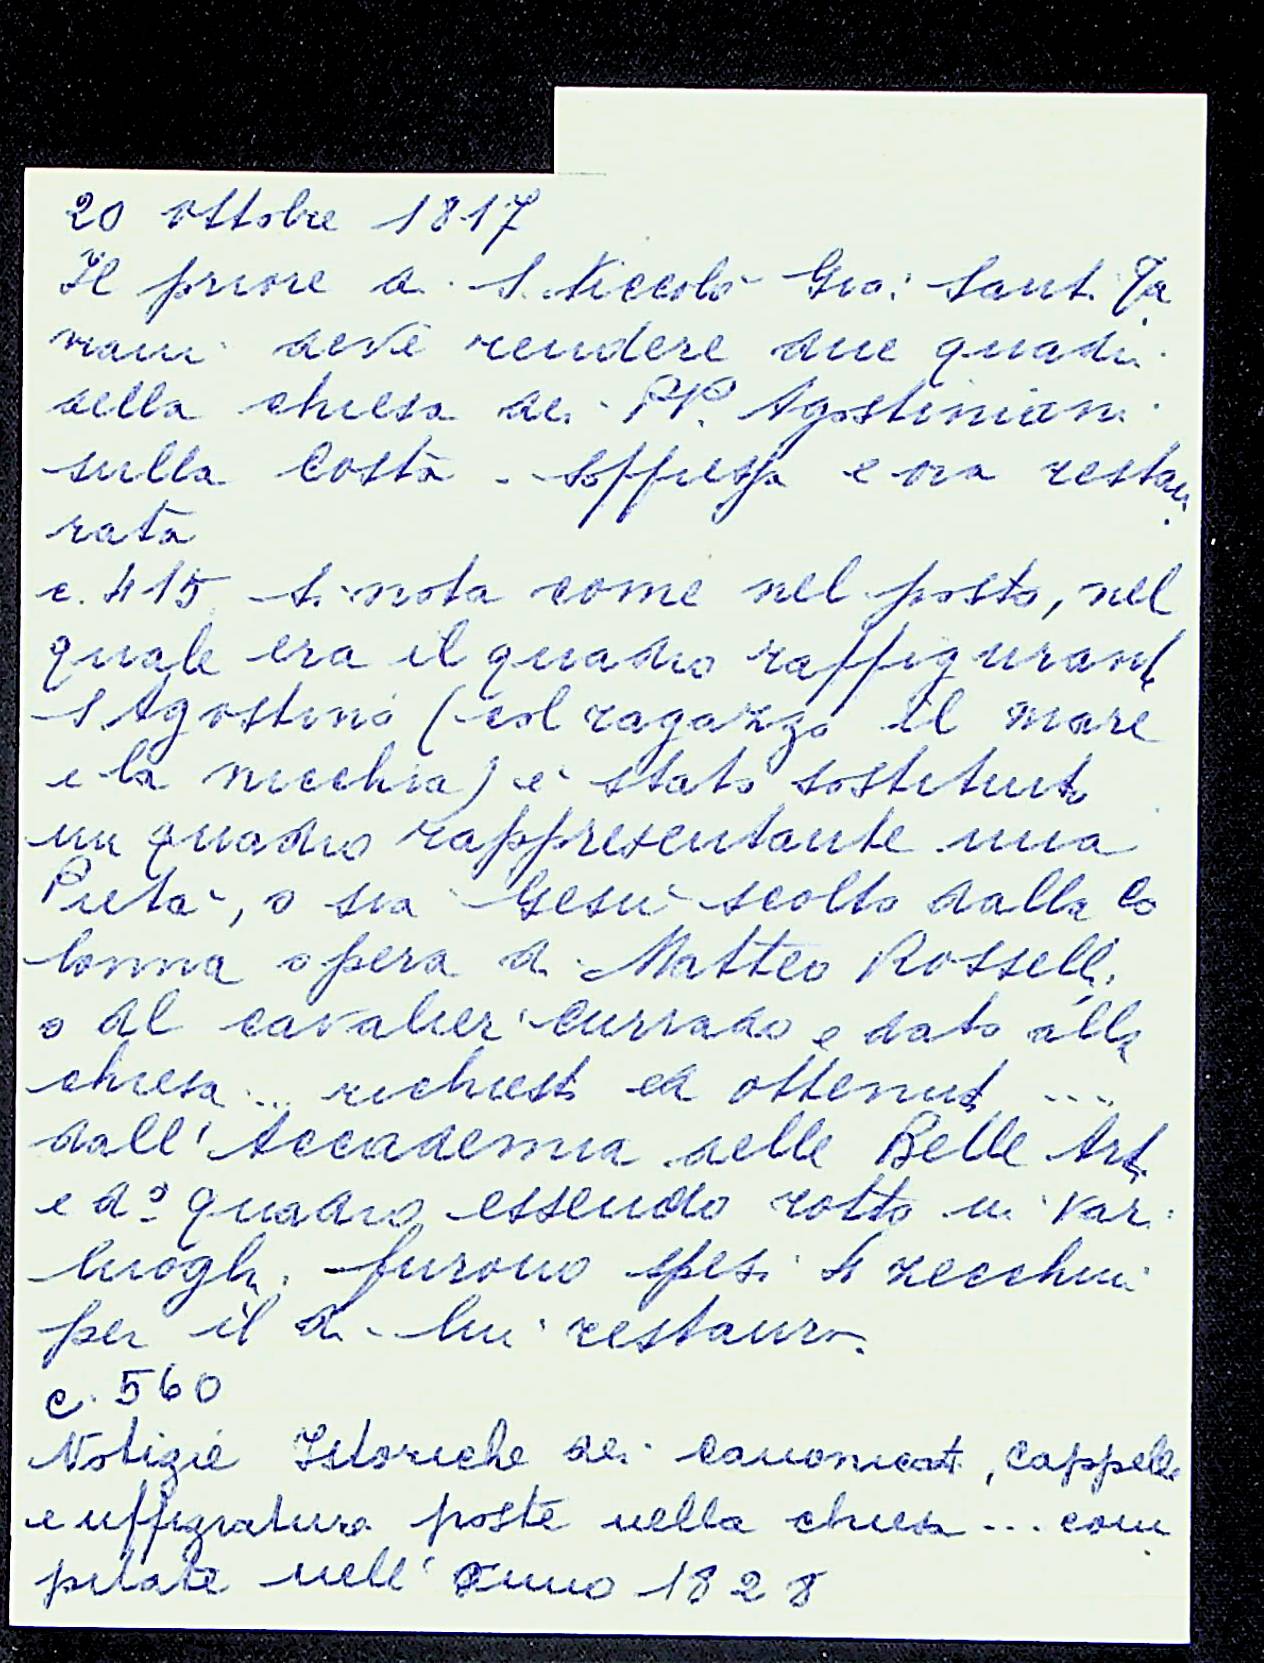 20 ottobre 1817
Il priore di S. Niccolò Gio: Sant. Ta
nani deve rendere due quadri
della chiesa dei PP. Agostiniani
sulla Costa - soppressa e ora restau
rata
c. 415 si nota come nel posto, nel
quale era il quadro raffigurante
S Agostino (col ragazzo il mare
e la nicchia) è stato sostituito
un quadro rappresentante una
Pietà, o sia Gesù sciolto dalla Co
lonna opera di Matteo Rosselli
o del cavalier Currado e dato alla
chiesa ... richiesti ed ottenuti ...
dall'Accademia delle Belle Arti
e dº quadro essendo rotto in vari
luoghi furono spesi 4 zecchini
per il di lui restauro.
c. 560
Notizie Istoriche dei canonicati, cappelle
e uffiziature poste nella chiesa ... com
pilate nell'anno 1828